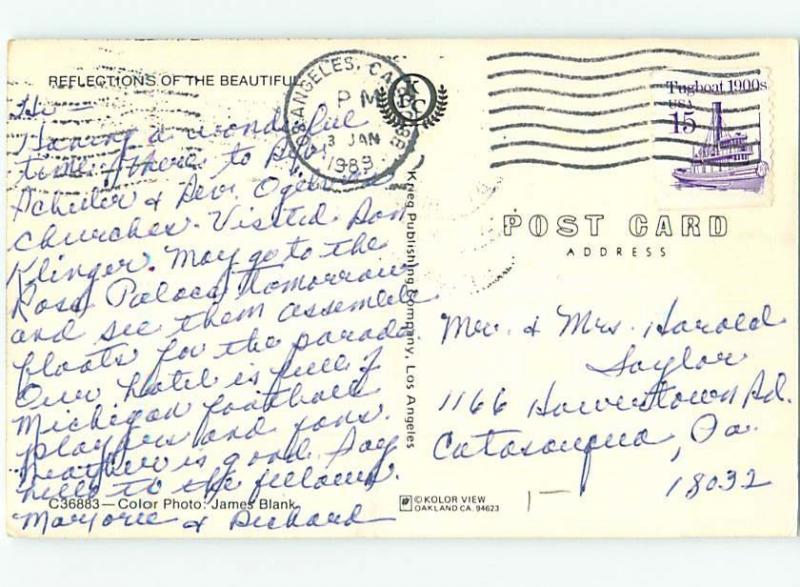 REFLECTIONS OF THE BEAUTIFUL
Hi
Having a wonderful
time. There to Dr.
Schuler & Rev. Ogelvie
churches. Visited Don
Klinger. May go to the
Rose Palace tomorrow
and see them assemble
floats for the parade.
Our hotel is full of
Michigan football
players and fans.
Weather is good. Say
hello to the fellows.
Marjorie & Richard
C36883—Color Photo: James Blank
LOS ANGELES, CA
PM
3 JAN
1989
KPC
Krieg Publishing Company, Los Angeles
Tugboat 1900s
USA
15
POST CARD
ADDRESS
Mr. & Mrs. Harold
Saylor
1166 Howertown Rd.
Catasauqua, Pa.
18032
© KOLOR VIEW
OAKLAND CA. 94623